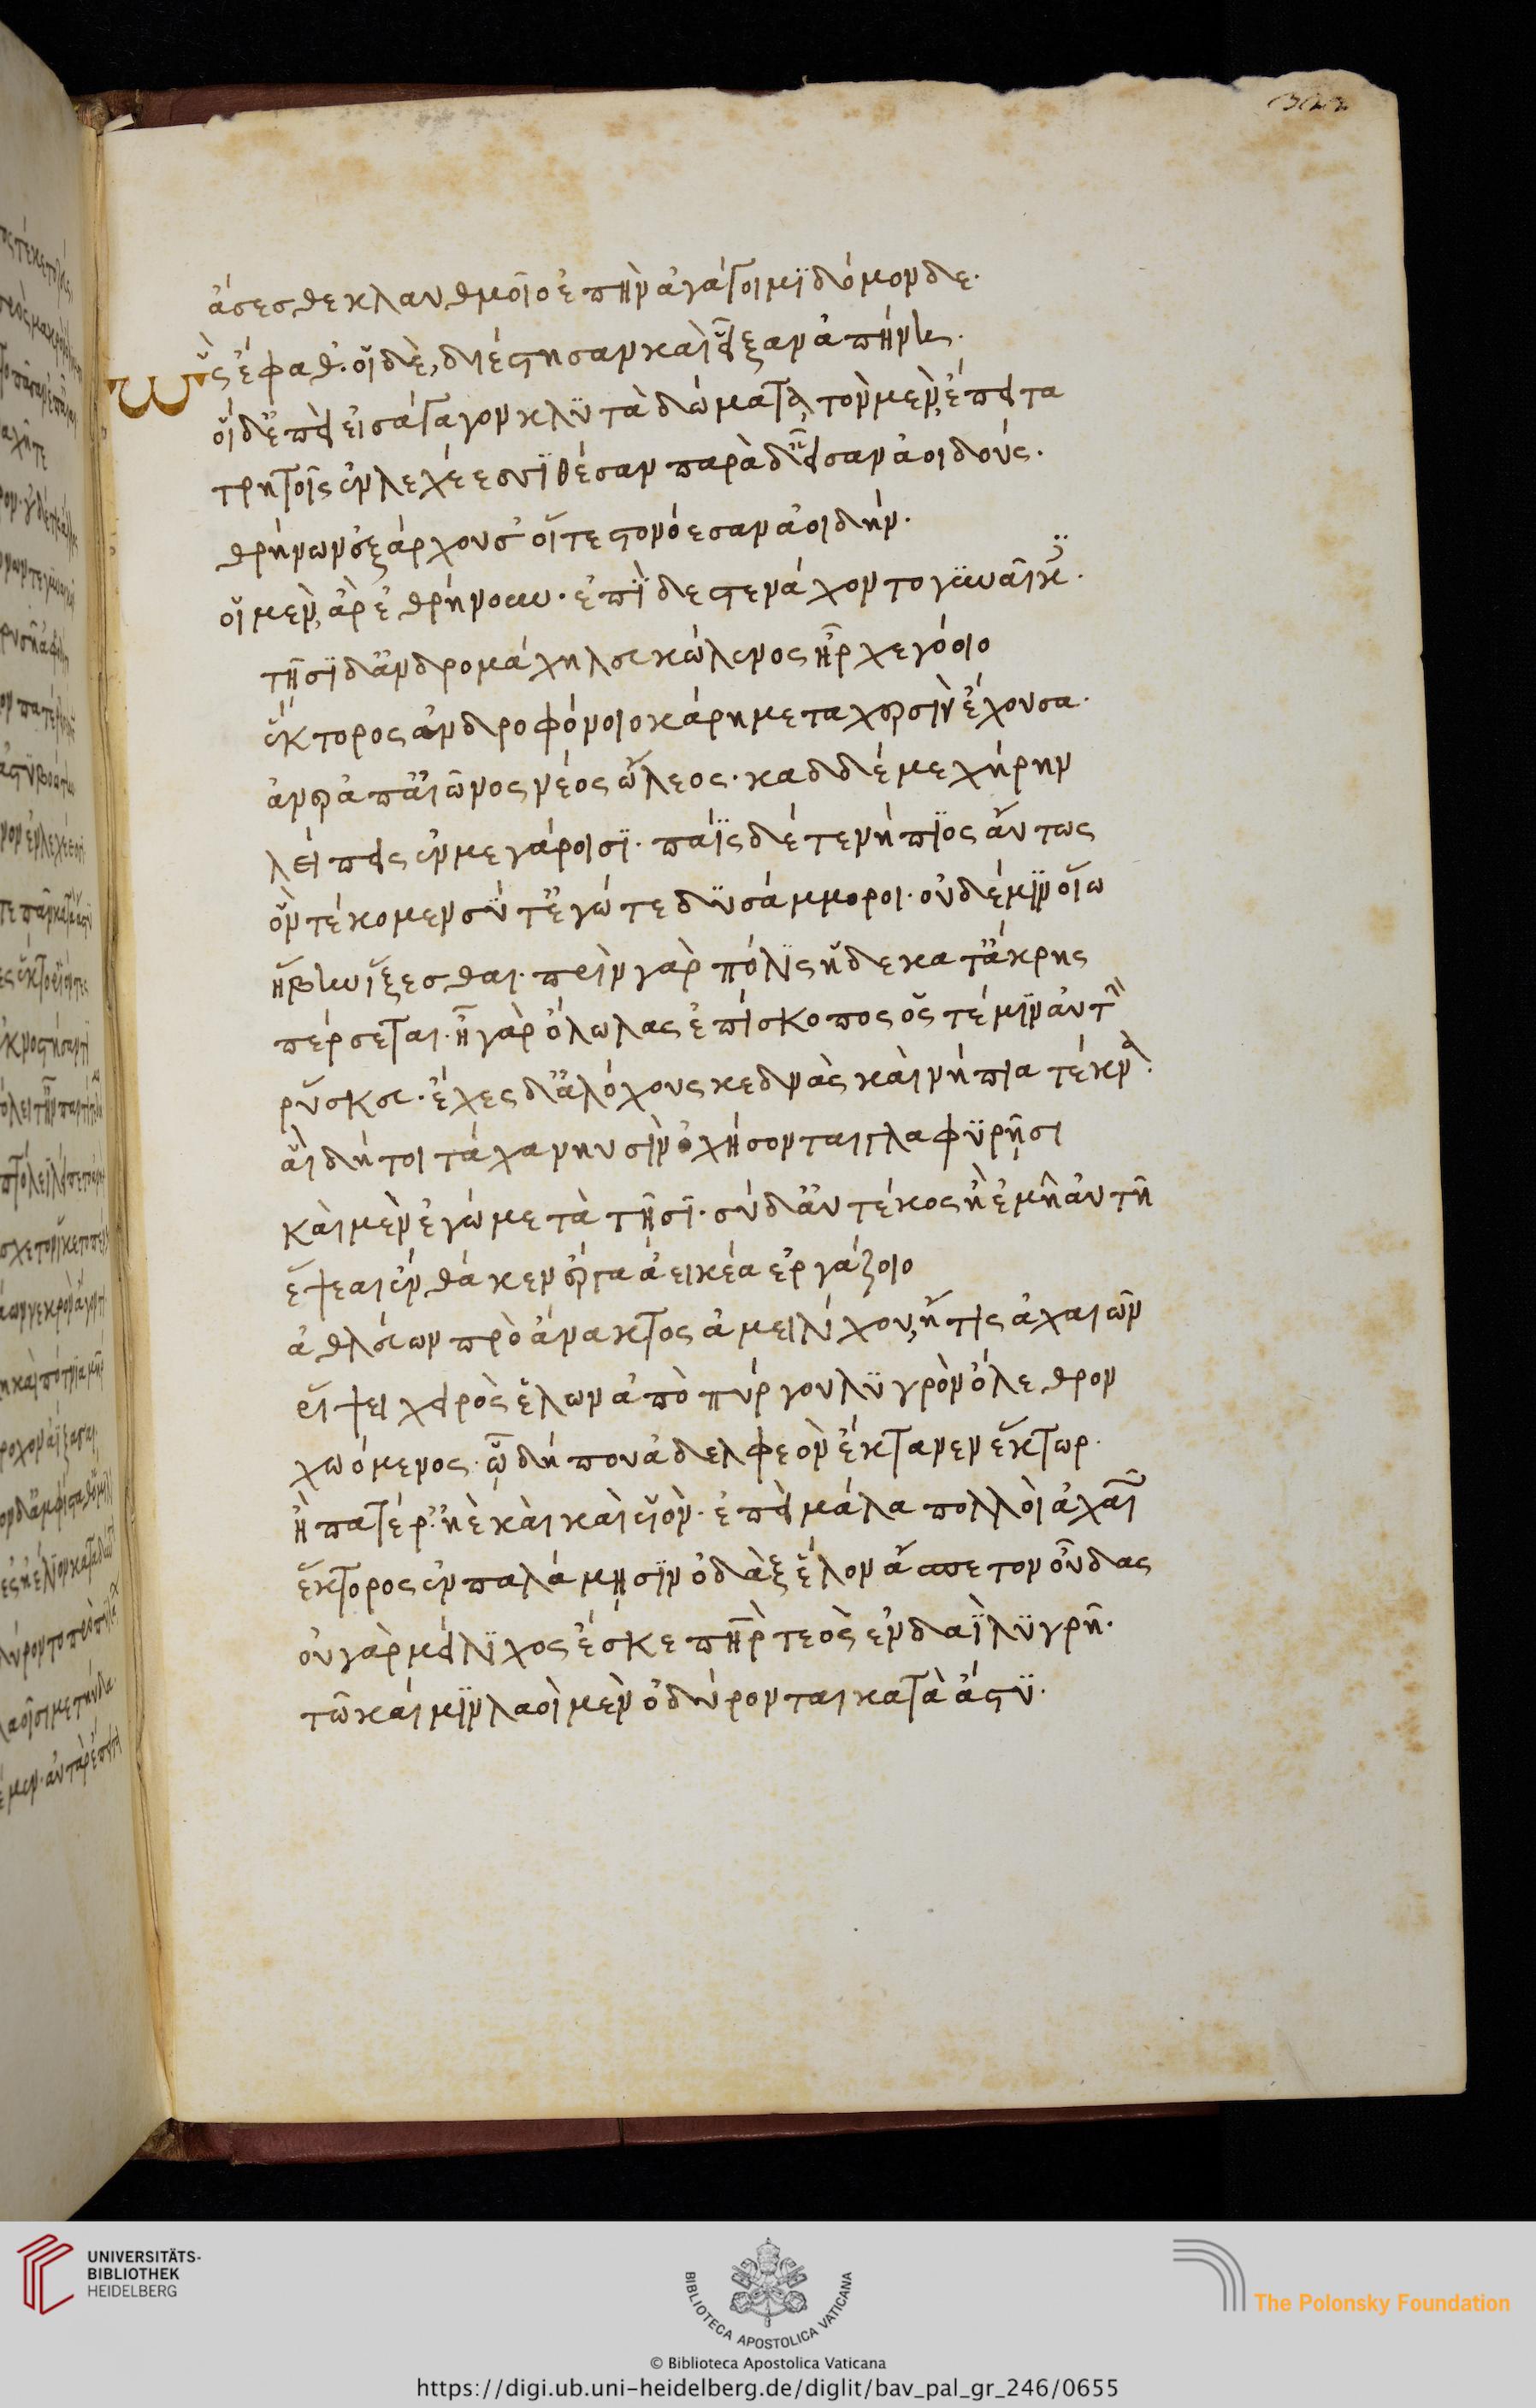 ἄσεσθε κλαυθμοῖο ἐπὴν ἀγάγοιμϊ δόμονδε·
Ὣς ἔφαθ'. οἳ δὲ, διέστησαν καὶ εἶξαν ἀπήνῃ.
οἳ δ' ἐπεὶ εἰσάγαγον κλϋτὰ δώματα, τὸν μὲν, ἔπειτα
τρητοῖς ἐν λεχέεσσϊ θέσαν παρὰ δ' εἷσαν ἀοιδούς.
θρήνων ἐξάρχουσ' οἵτε στονόεσαν ἀοιδήν.
οἳ μὲν, ἂρ ἐθρήνεον· ἐπῒ δε στενάχοντο γϋναῖκες.
τῇσϊ δ' ἀνδρομάχη λευκώλενος ἦρχε γόοιο
ἕκτορος ἀνδροφόνοιο κάρη μετα χερσὶν ἔχουσα·
ἆνερ ἀπ' ἀϊῶνος νέος ὤλεος· καδ δέ με χήρην
λείπεις ἐν μεγάροισϊ· πάϊς δέ τε νήπϊος αὔτως
ὃν τέκομεν σύ τ' ἐγώ τε δϋσάμμοροι· οὐδέ μϊν οἴω
ἥβην ἵξεσθαι· πρὶν γὰρ πόλϊς ἥδε κατ' ἄκρης
πέρσεται· ἦ γὰρ ὄλωλας ἐπίσκοπος ὅς τέ μϊν αὐτὴν
ῥύσκευ· ἔχες δ' ἀλόχους κεδνὰς καὶ νήπια τέκνα.
αἳ δή τοι τάχα νηυσὶν ὀχήσονται γλαφϋρῇσι
καὶ μὲν ἐγὼ μετὰ τῇσϊ· σύ δ' αὖ τέκος ἢ ἐμῇ αὐτῇ
ἕψεαι ἔνθά κεν ἔργα ἀεικέα ἐργάζοιο
ἀθλεύων πρὸ ἄνακτος ἀμειλίχου, ἤ τις ἀχαιῶν
ῥίψει χειρὸς ἑλὼν ἀπὸ πύργου λϋγρὸν ὄλεθρον
χωόμενος· ᾧ δή που ἀδελφεὸν ἔκτανεν ἕκτωρ·
ἢ πατέρ'. ἠὲ καὶ καὶ ϋἱόν· ἐπεὶ μάλα πολλοὶ ἀχαιῶν
ἕκτορος ἐν παλάμῃσϊν ὀδὰξ ἕλον ἄσπετον οὖδας
οὐ γὰρ μείλϊχος ἔσκε πατὴρ τεὸς ἐν δαῒ λϋγρῇ·
τῶ καί μϊν λαοὶ μὲν ὀδύρονται κατὰ ἄστϋ·
UNIVERSITÄTS-
BIBLIOTHEK
HEIDELBERG
BIBLIOTECA APOSTOLICA VATICANA
The Polonsky Foundation
© Biblioteca Apostolica Vaticana
https://digi.ub.uni-heidelberg.de/diglit/bav_pal_gr_246/0655